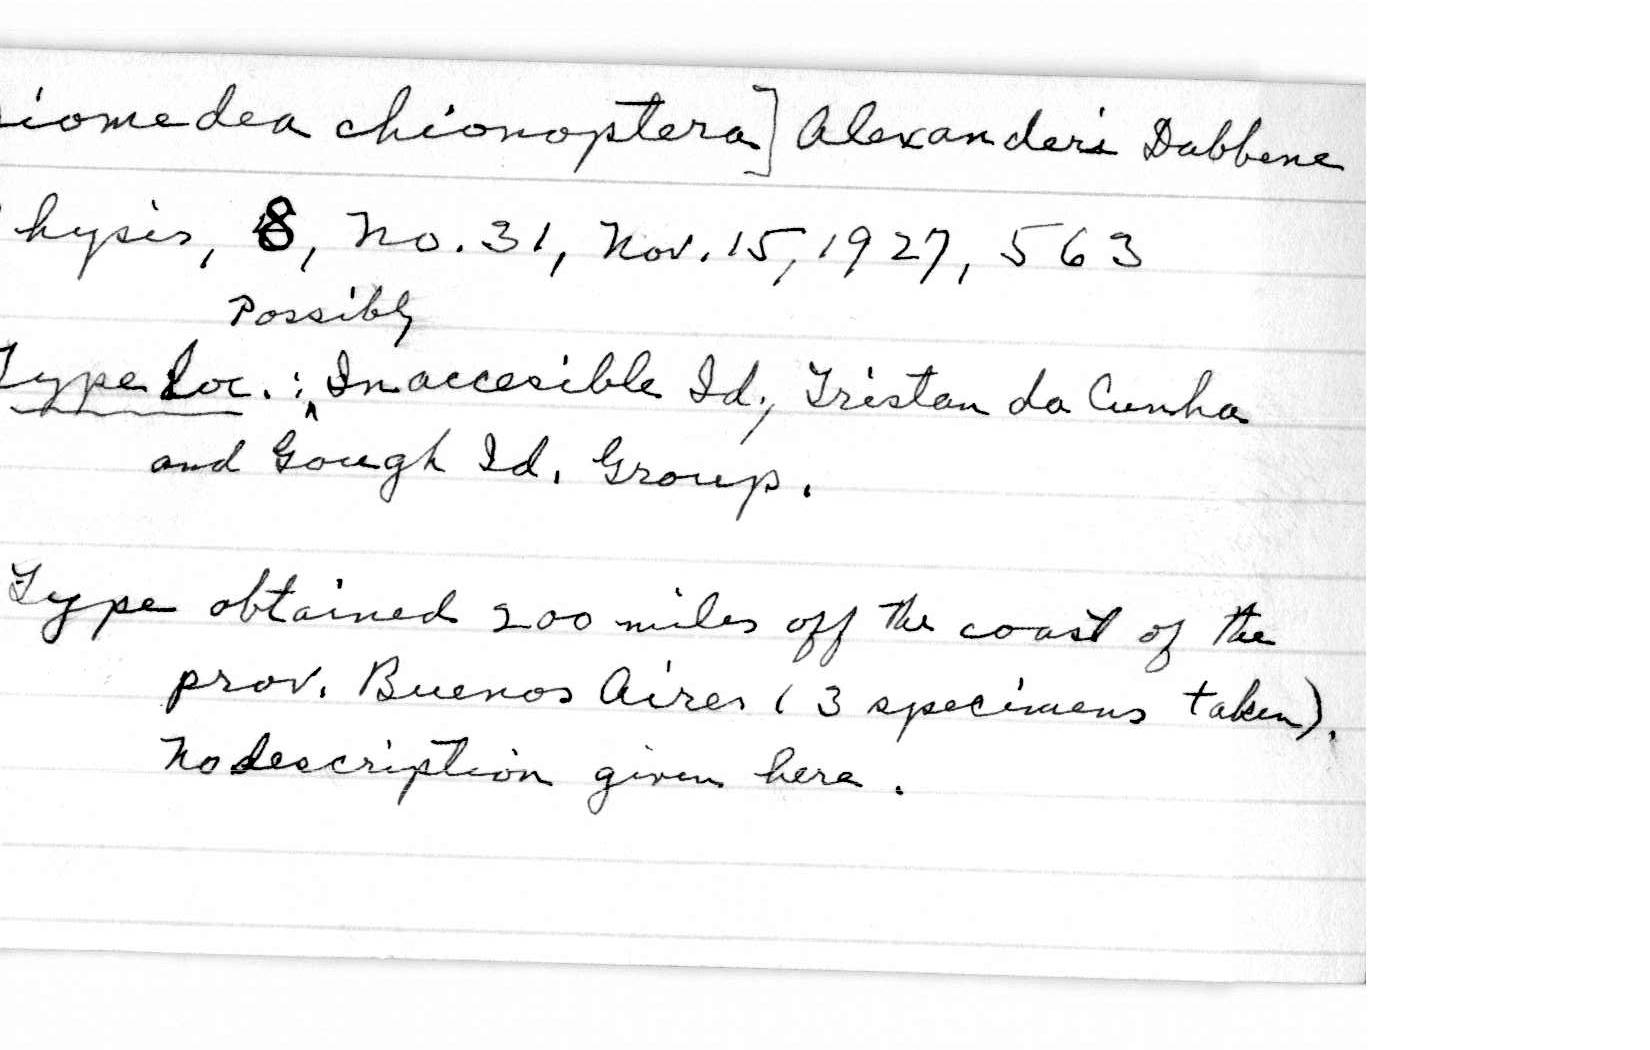 iomedea chionoptera] Alexanderi Dabbene
hysis, 8, No. 31, Nov. 15, 1927, 563
Possibly
Type Loc. : Inaccesible Id., Tristan da Cunha
and Gough Id. Group.
Type obtained 200 miles off the coast of the
prov. Buenos Aires (3 specimens taken).
No description given here.